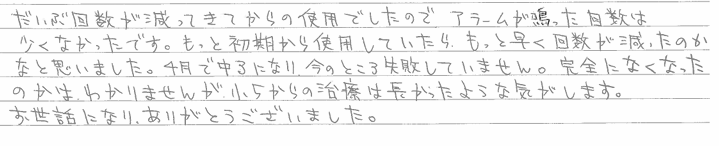 だいぶ回数が減ってきてからの使用でしたので アラームが鳴った回数は
少くなかったです。もっと初期から使用していたら、もっと早く回数が減ったのか
なと思いました。4月で中3になり、今のところ失敗していません。完全になくなった
のかは、わかりませんが、小5からの治療は長かったような気がします。
お世話になり、ありがとうございました。